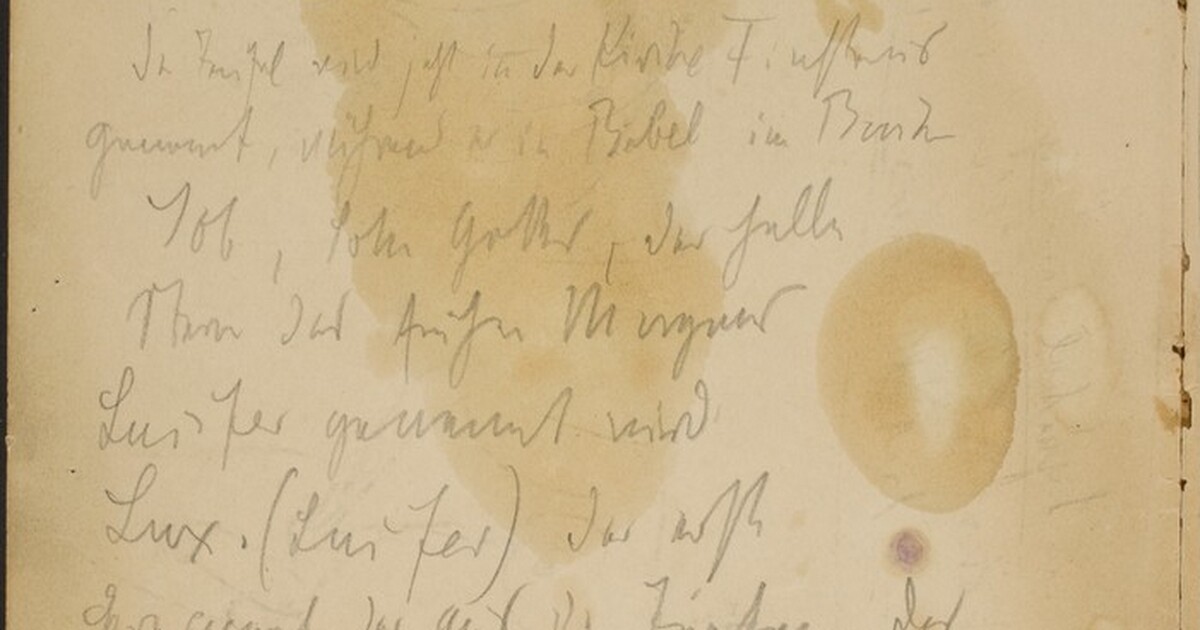 Der Teufel wird jetzt in der Kirche Finsternis
genannt, während er in Bibel im Buch
Iob, Sohn Gottes, der helle
Stern des frühen Morgens
Lucifer genannt wird
Lux. (Lucifer) der erste
der